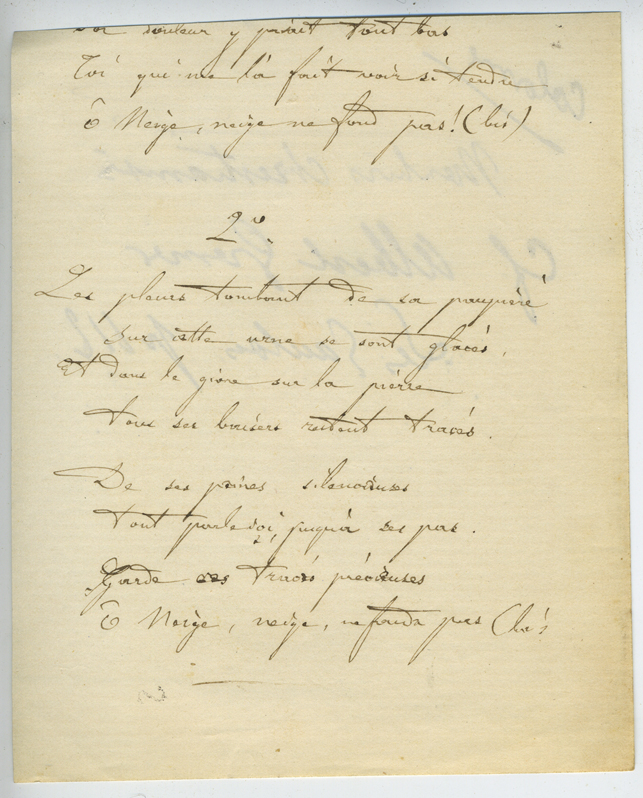 Sa douleur y priait tout bas
Toi qui me la fait voir si tendre
Ô Neige, neige ne fond pas! (bis)
2e
Les pleurs tombant de sa paupière
Sur cette urne se sont glacés,
Et dans le givre sur la pierre
Tous ses baisers restent tracés.
De ses peines silencieuses
Tout parle ici, jusqu'à ses pas.
Garde ces traces précieuses
Ô Neige, neige, ne fonds pas (bis